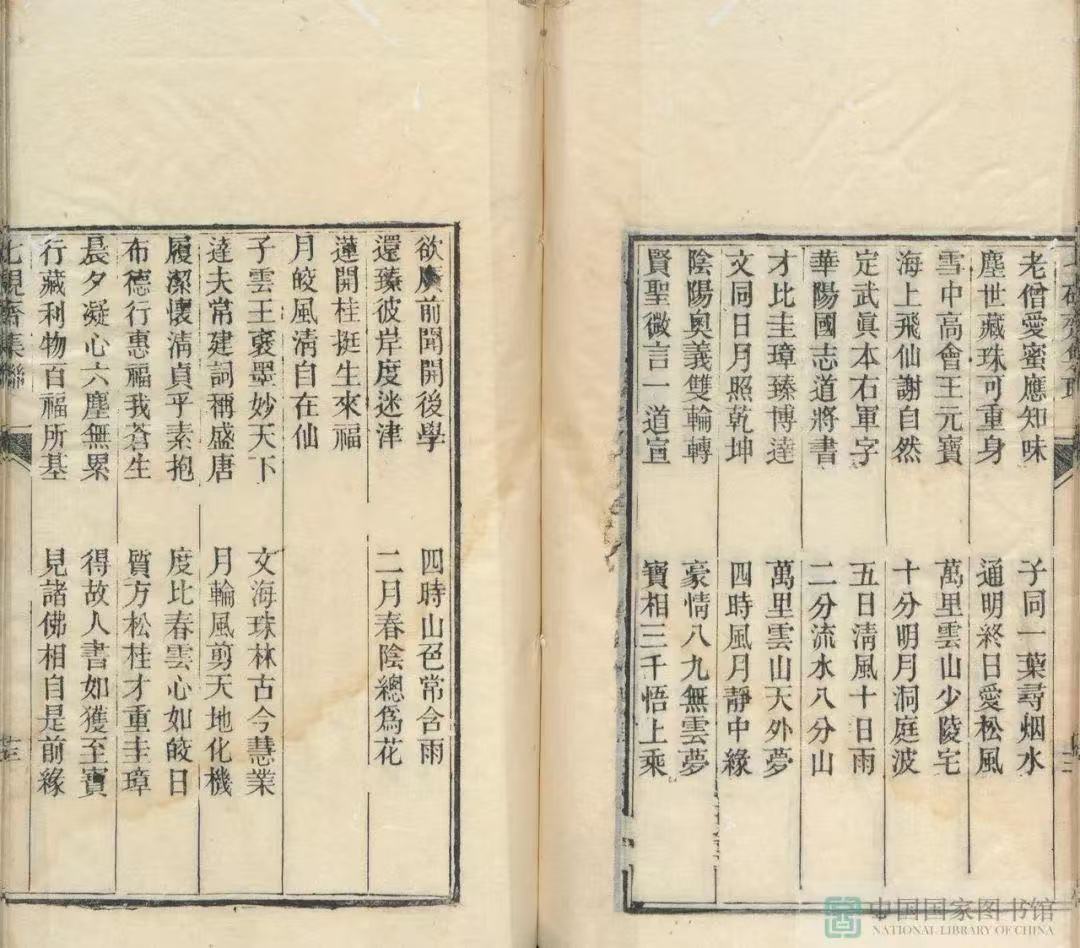 老僧愛蜜應知味 子同一葉尋烟水
塵世藏珠可重身 通明終日愛松風
雪中高會王元寶 萬里雲山少陵宅
海上飛仙謝自然 十分明月洞庭波
定武眞本右軍字 五日淸風十日雨
華陽國志道將書 二分流水八分山
才比圭璋臻博達 萬里雲山天外夢
文同日月照乾坤 四時風月靜中緣
陰陽奧義雙輪轉 豪情八九無雲夢
賢聖微言一道宣 寶相三千悟上乘
欲廣前聞開後學 四時山色常含雨
還臻彼岸度迷津 二月春陰總爲花
蓮開桂挺生來福
月皎風淸自在仙
子雲王褒墨妙天下 文海珠林古今慧業
達夫常建詞稱盛唐 月輪風剪天地化機
履潔懷淸貞乎素抱 度比春雲心如皎日
布德行惠福我蒼生 質方松桂才重圭璋
晨夕凝心六塵無累 得故人書如獲至寶
行藏利物百福所基 見諸佛相自是前緣
齋集聯
中国国家图书馆
NATIONAL LIBRARY OF CHINA